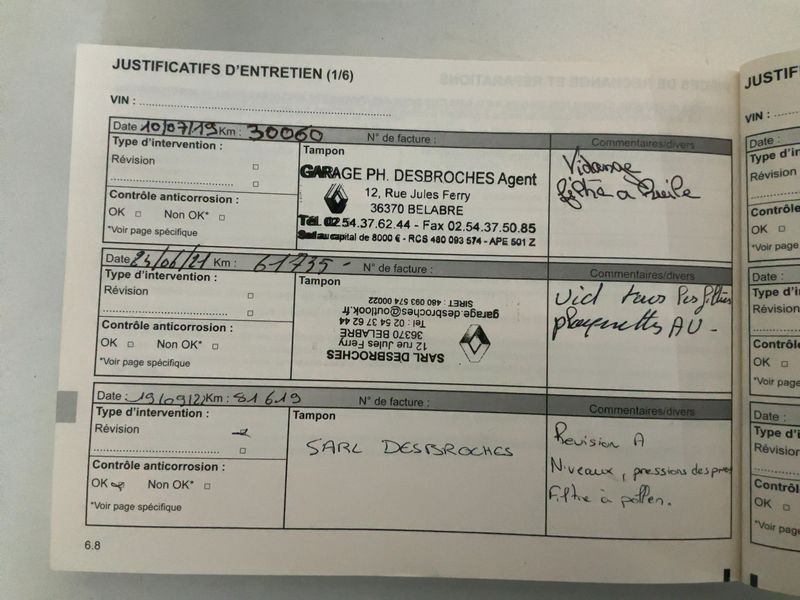 JUSTIFICATIFS D'ENTRETIEN (1/6)
VIN :
Date 10/07/19 Km : 30060 N° de facture : Commentaires/divers
Type d'intervention :
Révision
Contrôle anticorrosion :
OK Non OK*
*Voir page spécifique
Tampon
GARAGE PH. DESBROCHES Agent
12, Rue Jules Ferry
36370 BELABRE
Tél. 02.54.37.62.44 - Fax 02.54.37.50.85
Sarl au capital de 8000 € - RCS 480 093 574 - APE 501 Z
Vidange
filtre a huile
Date 24/06/21 Km : 61735 - N° de facture : Commentaires/divers
Type d'intervention :
Révision
Contrôle anticorrosion :
OK Non OK*
*Voir page spécifique
Tampon
SARL DESBROCHES
12 rue Jules Ferry
36370 BELABRE
Tel : 02 54 37 62 44
garage.desbroches@outlook.fr
SIRET : 480 093 574 00022
Vid tous les filtres
plaquettes AV -
Date : 19/09/2 Km : 81619 N° de facture : Commentaires/divers
Type d'intervention :
Révision
Contrôle anticorrosion :
OK Non OK*
*Voir page spécifique
Tampon
SARL DESBROCHES
Revision A
Niveaux, pressions des pneu
Filtre à pollen.
6.8
JUSTIF
VIN :
Date :
Type d'in
Révision
Contrôl
OK
*Voir pag
Type d'i
Révision
Contrôl
OK
*Voir pag
Date :
Type d'i
Révision
Contrôl
OK
*Voir pag